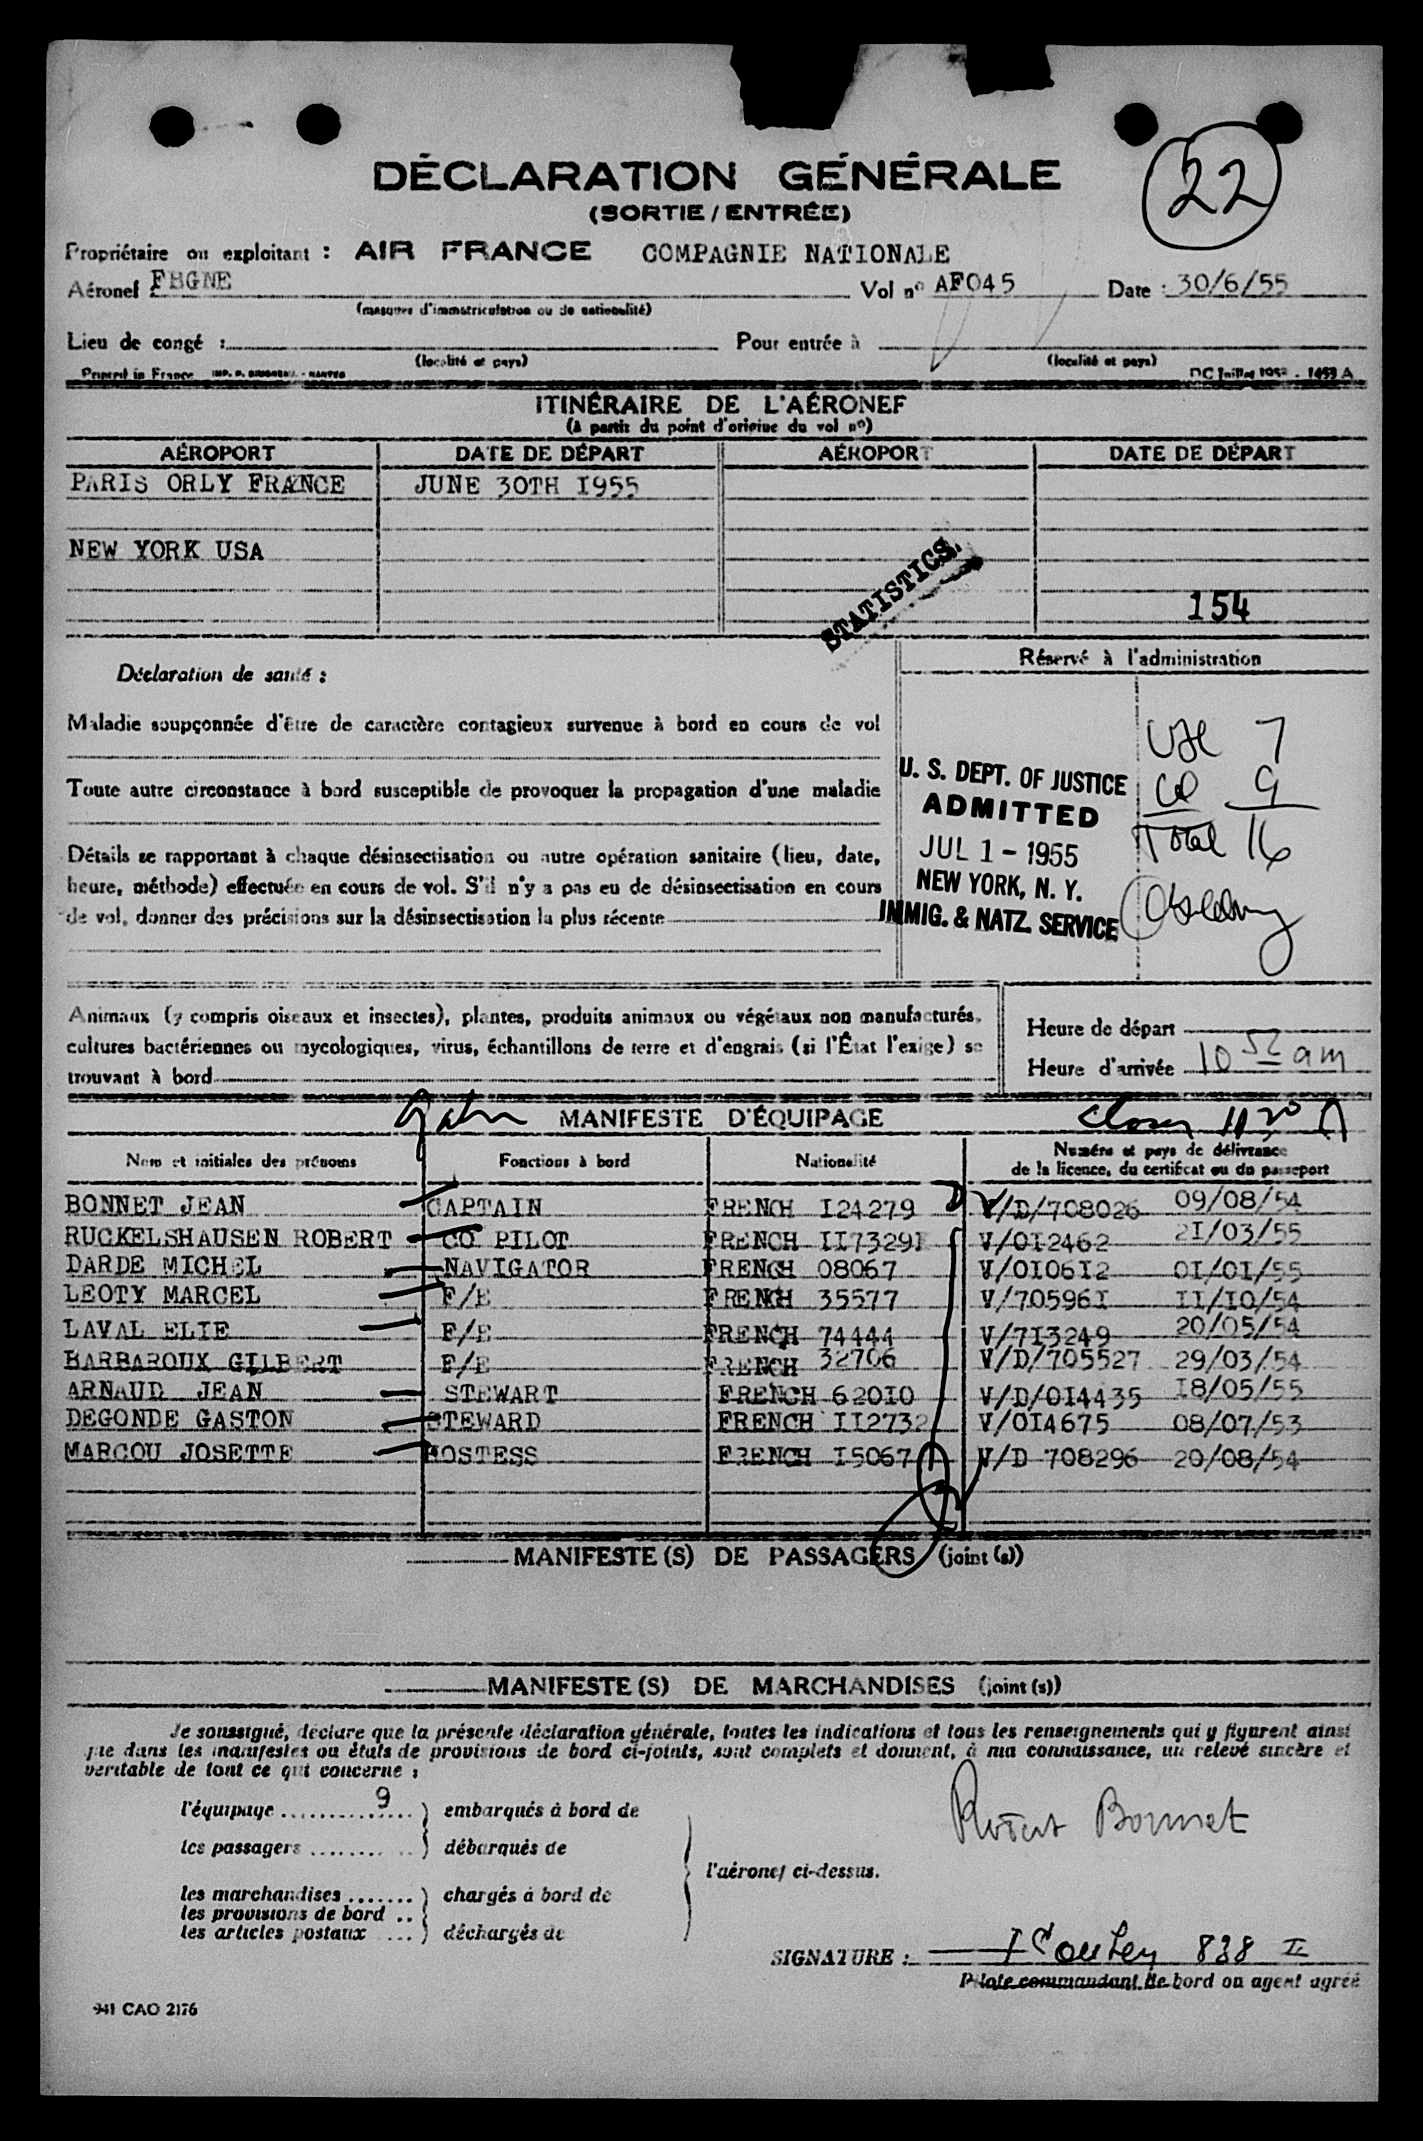 22
DÉCLARATION GÉNÉRALE
(SORTIE / ENTRÉE)
Propriétaire ou exploitant : AIR FRANCE COMPAGNIE NATIONALE
Aéronef FBGNE Vol nº AF045 Date : 30/6/55
(marques d'immatriculation ou de nationalité)
Lieu de congé : Pour entrée à
(localité et pays) (localité et pays)
Printed in France
ITINÉRAIRE DE L'AÉRONEF
(à partir du point d'origine du vol nº)
AÉROPORT DATE DE DÉPART AÉROPORT DATE DE DÉPART
PARIS ORLY FRANCE JUNE 30TH I955
NEW YORK USA
STATISTICS.
154
Réservé à l'administration
Déclaration de santé :
Maladie soupçonnée d'être de caractère contagieux survenue à bord en cours de vol
Toute autre circonstance à bord susceptible de provoquer la propagation d'une maladie
Détails se rapportant à chaque désinsectisation ou autre opération sanitaire (lieu, date,
heure, méthode) effectuée en cours de vol. S'il n'y a pas eu de désinsectisation en cours
de vol, donner des précisions sur la désinsectisation la plus récente
U. S. DEPT. OF JUSTICE
ADMITTED
JUL 1 - 1955
NEW YORK, N. Y.
IMMIG. & NATZ. SERVICE
7
9
Total 16
Animaux (y compris oiseaux et insectes), plantes, produits animaux ou végétaux non manufacturés,
cultures bactériennes ou mycologiques, virus, échantillons de terre et d'engrais (si l'État l'exige) se
trouvant à bord
Heure de départ
Heure d'arrivée 10 52 am
MANIFESTE D'ÉQUIPAGE
Nom et initiales des prénoms Fonctions à bord Nationalité Numéro et pays de délivrance
de la licence, du certificat ou du passeport
BONNET JEAN CAPTAIN FRENCH I24279 V/D/708026 09/08/54
RUCKELSHAUSEN ROBERT CO PILOT FRENCH II7329I V/0I2462 2I/03/55
DARDE MICHEL NAVIGATOR FRENCH 08067 V/0I06I2 0I/0I/55
LEOTY MARCEL F/E FRENCH 35577 V/70596I II/I0/54
LAVAL ELIE F/E FRENCH 74444 V/7I3249 20/05/54
BARBAROUX GILBERT F/E FRENCH 32706 V/D/705527 29/03/54
ARNAUD JEAN STEWART FRENCH 620I0 V/D/0I4435 I8/05/55
DEGONDE GASTON STEWARD FRENCH II2732 V/0I4675 08/07/53
MARCOU JOSETTE HOSTESS FRENCH I5067 V/D 708296 20/08/54
MANIFESTE (S) DE PASSAGERS (joint (s))
MANIFESTE (S) DE MARCHANDISES (joint (s))
Je soussigné, déclare que la présente déclaration générale, toutes les indications et tous les renseignements qui y figurent ainsi
que dans les manifestes ou états de provisions de bord ci-joints, sont complets et donnent, à ma connaissance, un relevé sincère et
véritable de tout ce qui concerne :
l'équipage 9 embarqués à bord de
les passagers débarqués de
l'aéronef ci-dessus.
les marchandises chargés à bord de
les provisions de bord
les articles postaux déchargés de
Bonnet
SIGNATURE : 838 II
Pilote commandant de bord ou agent agréé
941 CAO 2176